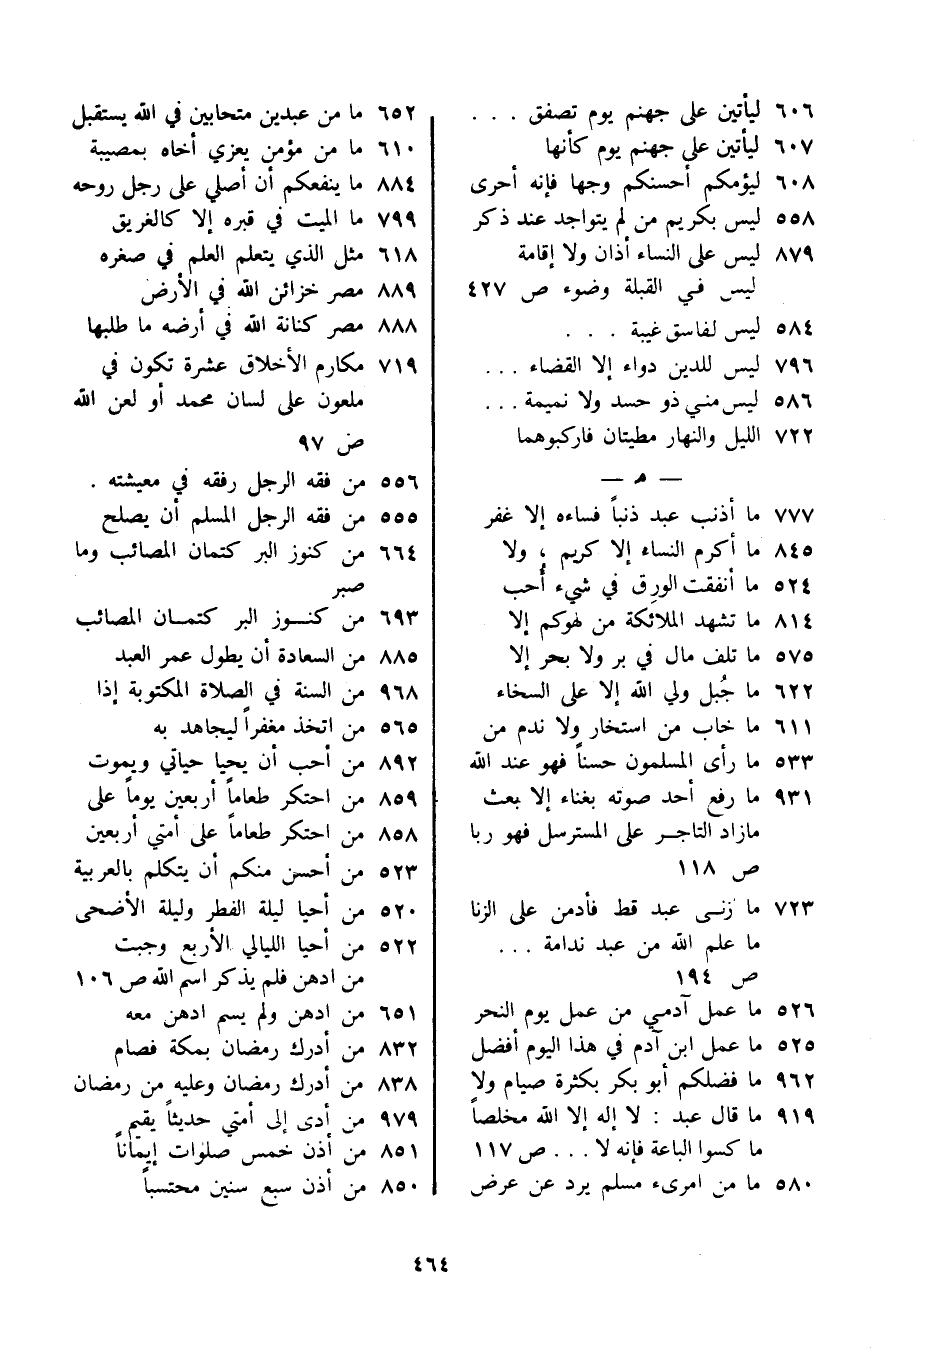 ٦٠٦ ليأتين على جهنم يوم تصفق . . .
٦٠٧ ليأتين على جهنم يوم كأنها
٦٠٨ ليؤمكم أحسنكم وجها فإنه أحرى
٥٥٨ ليس بكريم من لم يتواجد عند ذكر
٨٧٩ ليس على النساء أذان ولا إقامة
ليس في القبلة وضوء ص ٤٢٧
٥٨٤ ليس لفاسق غيبة . . .
٧٩٦ ليس للدين دواء إلا القضاء . . .
٥٨٦ ليس مني ذو حسد ولا نميمة . . .
٧٢٢ الليل والنهار مطيتان فاركبوهما
— م —
٧٧٧ ما أذنب عبد ذنباً فساءه إلا غفر
٨٤٥ ما أكرم النساء إلا كريم ، ولا
٥٢٤ ما أنفقت الورِق في شيء أحب
٨١٤ ما تشهد الملائكة من لهوكم إلا
٥٧٥ ما تلف مال في بر ولا بحر إلا
٦٢٢ ما جُبل ولي الله إلا على السخاء
٦١١ ما خاب من استخار ولا ندم من
٥٣٣ ما رأى المسلمون حسناً فهو عند الله
٩٣١ ما رفع أحد صوته بغناء إلا بعث
مازاد التاجر على المسترسل فهو ربا
ص ١١٨
٧٢٣ ما زنى عبد قط فأدمن على الزنا
ما علم الله من عبد ندامة . . .
ص ١٩٤
٥٢٦ ما عمل آدمي من عمل يوم النحر
٥٢٥ ما عمل ابن آدم في هذا اليوم أفضل
٩٦٢ ما فضلكم أبو بكر بكثرة صيام ولا
٩١٩ ما قال عبد : لا إله إلا الله مخلصاً
ما كسوا الباعة فإنه لا . . . ص ١١٧
٥٨٠ ما من امرىء مسلم يرد عن عرض
٦٥٢ ما من عبدين متحابين في الله يستقبل
٦١٠ ما من مؤمن يعزي أخاه بمصيبة
٨٨٤ ما ينفعكم أن أصلي على رجل روحه
٧٩٩ ما الميت في قبره إلا كالغريق
٦١٨ مثل الذي يتعلم العلم في صغره
٨٨٩ مصر خزائن الله في الأرض
٨٨٨ مصر كنانة الله في أرضه ما طلبها
٧١٩ مكارم الأخلاق عشرة تكون في
ملعون على لسان محمد أو لعن الله
ص ٩٧
٥٥٦ من فقه الرجل رفقه في معيشته .
٥٥٥ من فقه الرجل المسلم أن يصلح
٦٦٤ من كنوز البر كتمان المصائب وما
صبر
٦٩٣ من كنوز البر كتمان المصائب
٨٨٥ من السعادة أن يطول عمر العبد
٩٦٨ من السنة في الصلاة المكتوبة إذا
٥٦٥ من اتخذ مغفراً ليجاهد به
٨٩٢ من أحب أن يحيا حياتي ويموت
٨٥٩ من احتكر طعاماً أربعين يوماً على
٨٥٨ من احتكر طعاماً على أمتي أربعين
٥٢٣ من أحسن منكم أن يتكلم بالعربية
٥٢٠ من أحيا ليلة الفطر وليلة الأضحى
٥٢٢ من أحيا الليالي الأربع وجبت
من ادهن فلم يذكر اسم الله ص ١٠٦
٦٥١ من ادهن ولم يسم ادهن معه
٨٣٢ من أدرك رمضان بمكة فصام
٨٣٨ من أدرك رمضان وعليه من رمضان
٩٧٩ من أدى إلى أمتي حديثاً يقيم
٨٥١ من أذن خمس صلوات إيماناً
٨٥٠ من أذن سبع سنين محتسباً
٤٦٤